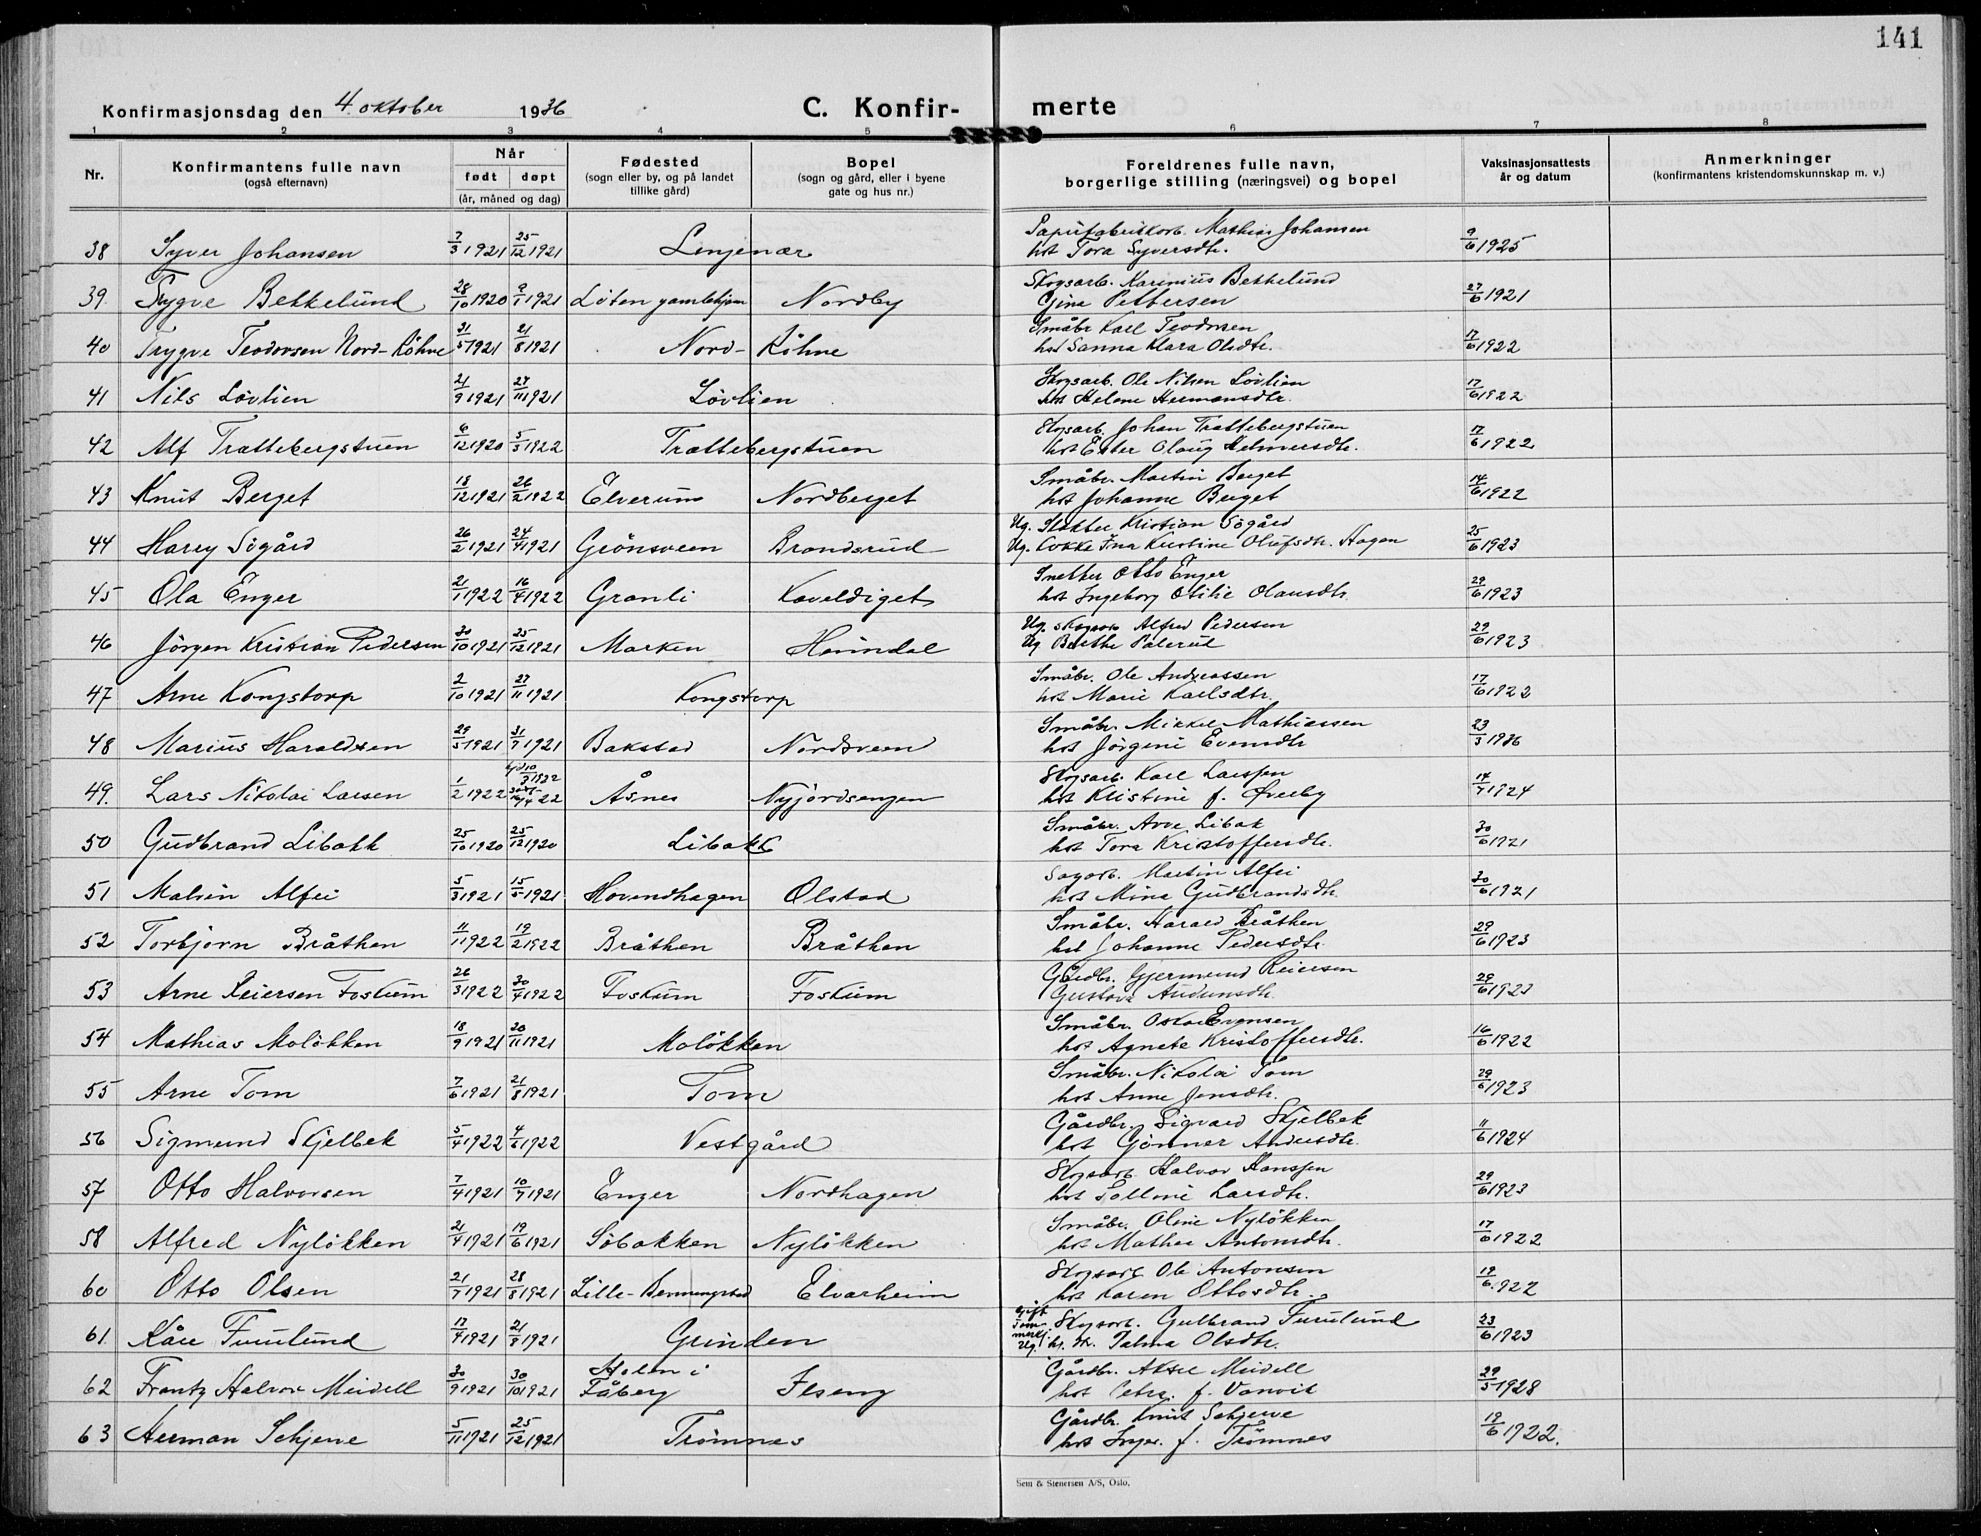 141
Konfirmasjonsdag den 4. oktober 1936
C. Konfir- merte
1 2 3 4 5 6 7 8
Nr. Konfirmantens fulle navn (også efternavn) Når født døpt (år, måned og dag) Fødested (sogn eller by, og på landet tillike gård) Bopel (sogn og gård, eller i byene gate og hus nr.) Foreldrenes fulle navn, borgerlige stilling (næringsvei) og bopel Vaksinasjonsattests år og datum Anmerkninger (konfirmantens kristendomskunnskap m. v.)
38 Syver Johansen 7/3 1921 25/12 1921 Mathias Johansen
hst Tora Syversdtr. 9/6 1925
39. Trygve Bekkelund 28/10 1920 9/1 1921 Løten gamlehjem Nordby Skogsarb. Karinius Bekkelund
Gina Pettersen 27/6 1921
40 Trygve Teodorsen Nord-Köhne 31/5 1921 21/8 1921 Nord-Köhne Småbr Karl Teodorsen
hst Sanna Klara Olsdtr. 17/6 1922
41 Nils Lövlien 21/9 1921 27/11 1921 Lövlien Skogsarb. Ole Nilsen Lövlien
hst Helene Hermansdtr. 17/6 1922
42 Alf Trattebergstuen 6/12 1920 5/3 1922 Trattebergstuen Skogsarb. Johan Trattebergstuen
hst Ester Olaug Helmersdtr. 17/6 1922
43 Knut Berget 18/12 1921 26/2 1922 Elverum Nordberget Småbr. Martin Berget
hst Johanne Berget 14/6 1922
44 Harry Sögård 26/2 1921 24/4 1921 Grönsveen Brandsrud Ug. Slakter Kristian Sögård
Ug. Kokke Ina Kristine Olufsdtr. Hagen 25/6 1923
45 Ola Enger 21/1 1922 16/4 1922 Granli Kaveldiget Snekker Otto Enger
hst Ingeborg Otilie Olausdtr. 29/6 1923
46 Jörgen Kristian Pedersen 30/10 1921 25/12 1921 Marken Ug. Skogsarb Alfred Pedersen
Ug. Barthe Palerud 29/6 1923
47 Arne Kongstorp 2/10 1921 27/11 1921 Kongstorp Småbr. Ole Andreassen
hst Marie Karlsdtr. 17/6 1922
48 Marius Haraldsen 29/5 1921 31/7 1921 Bakstad Nordsveen Småbr. Mikkel Mathiassen
hst Jörgine Evensdtr 23/3 1936
49. Lars Nikolai Larsen 1/2 1922 Åsnes Nyjordsengen Skogsarb. Karl Larssen
hst Kristine f. Øverby 14/7 1924
50 Gudbrand Libakk 25/10 1920 25/12 1920 Libakk Småbr. Arve Libak
hst Tora Kristoffersdtr. 30/6 1921
51 Malvin Alfei 5/3 1921 15/5 1921 Hovendhagen Ølstad Sagarb. Martin Alfei
hst Mina Gudbrandsdtr. 30/6 1921
52 Torbjørn Bråthen 11/11 1922 19/2 1922 Bråthen Bråthen Småbr. Harald Bråthen
hst Johanne Pedersdtr. 29/6 1923
53 Arne Reiersen Foskum 26/3 1922 30/4 1922 Foskum Foskum Gårdbr. Gjermund Reiersen
Gustava Audunsdtr. 29/6 1923
54 Mathias Molökken 18/9 1921 20/11 1921 Molökken Småbr. Oskar Evensen
hst Agnete Kristoffersdtr. 16/6 1922
55 Arne Tom 7/6 1921 21/8 1921 Tom Småbr. Nikolai Tom
hst Anne Jensdtr. 29/6 1923
56 Sigmund Skjelbek 5/4 1922 4/6 1922 Vestgård Gårdbr. Sigvard Skjelbek
hst Gönner Andersdtr. 11/6 1924
57 Otto Halvorsen 7/4 1921 10/7 1921 Enger Nordhagen Skogsarb Halvor Hanssen
hst Larsdtr. 29/6 1923
58 Alfred Nylökken 21/4 1921 19/6 1921 Söbakken Nylökken Småbr. Oline Nylökken
hst Mathea Antonsdtr. 17/6 1922
60 Otto Olsen 21/7 1921 28/8 1921 Elvarheim Skogsarb Ole Antonsen
hst Karen Ottosdtr. 19/6 1922
61. Kåre Furulund 17/4 1921 21/8 1921 Grinden Skogsarb. Gulbrand Furulund
Ug. Palma Olsdtr. 23/6 1923
62 Frantz Halvor Meidell 30/9 1921 30/10 1921 Holen i Fåberg Ilseng Gårdbr. Aksel Meidell
hst Petra f. Vanvik 29/5 1928
63 Herman Schjerve 5/11 1921 25/12 1921 Trömnes Gårdbr. Knut Schjerve
hst Inger f. Trömnes 19/6 1922.
Sem & Stenersen A/S, Oslo.